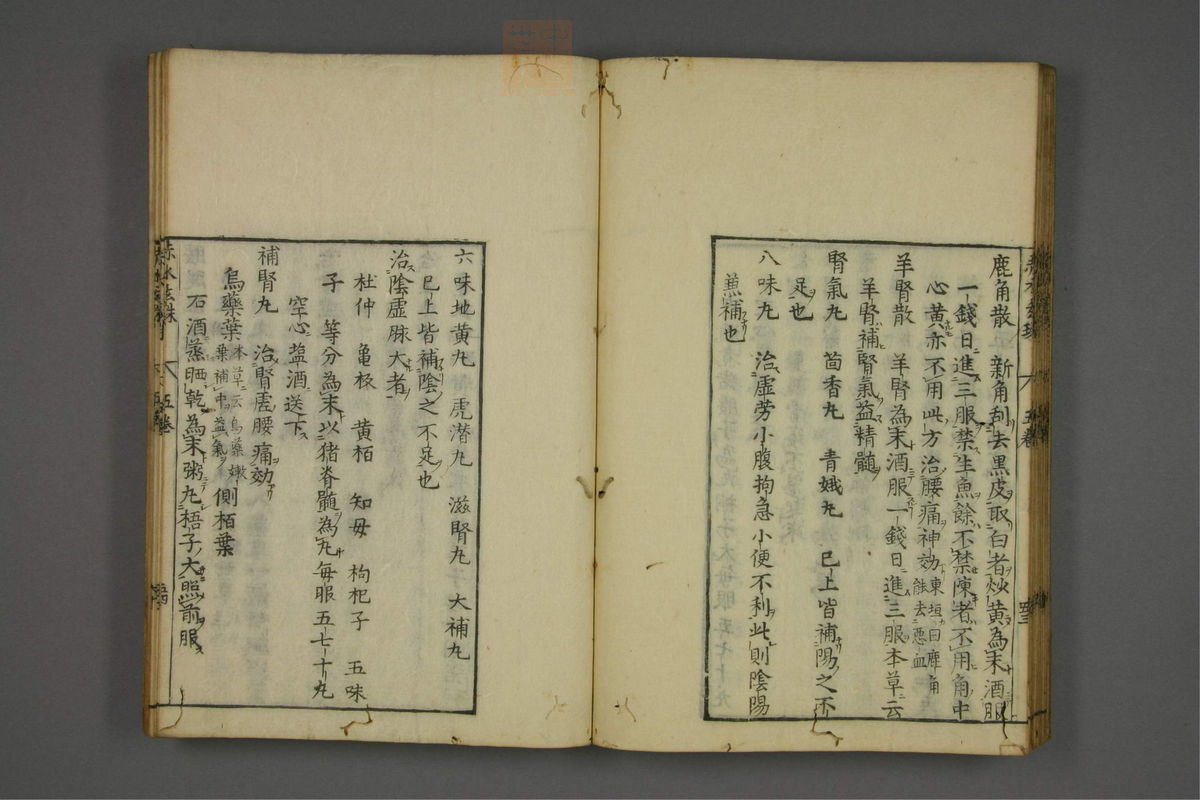 鹿角散 新角刮去黒皮取白者炒黄為末酒服
一錢日進三服禁生魚餘不禁陳者不用角中
心黄亦不用此方治腰痛神効東垣曰鹿角能去悪血
羊腎散 羊腎為末酒服一錢日進三服本草云
羊腎補腎氣益精髓
腎氣丸 茴香丸 青娥丸 已上皆補陽之不
足也
八味丸 治虚劳小腹拘急小便不利此則陰陽
兼補也
六味地黄丸 虎潜丸 滋腎丸 大補丸
已上皆補陰之不足也
治陰虚脉大者
杜仲 亀板 黄栢 知母 枸杞子 五味
子 等分為末以猪脊髓為丸毎服五七十丸
空心塩酒送下
補腎丸 治腎虚腰痛効
烏藥葉本草云烏藥嫩葉補中益氣 側栢葉
石酒蒸晒乾為末粥丸梧子大照前服